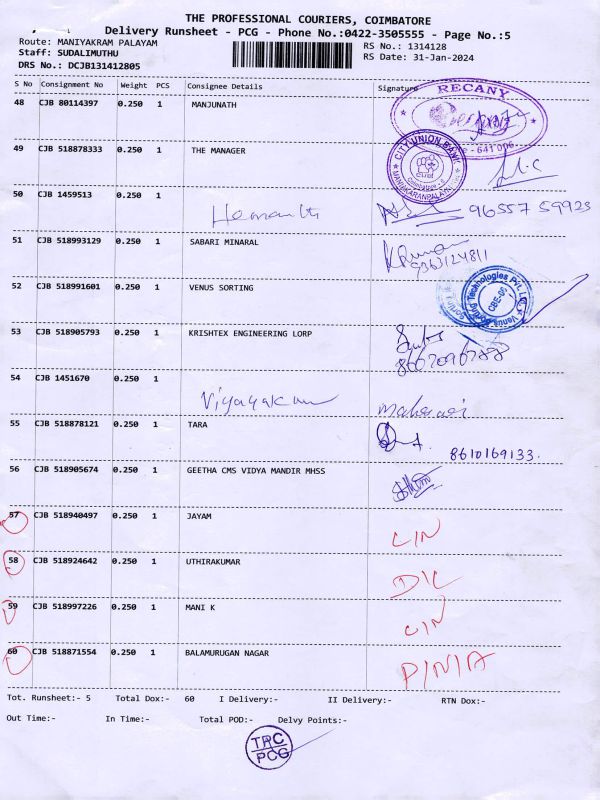 THE PROFESSIONAL COURIERS, COIMBATORE
Delivery Runsheet - PCG - Phone No.:0422-3505555 - Page No.:5
Route: MANIYAKRAM PALAYAM
RS No.: 1314128
Staff: SUDALIMUTHU
RS Date: 31-Jan-2024
DRS No.: DCJB131412805
S No Consignment No Weight PCS Consignee Details Signature
48 CJB 80114397 0.250 1 MANJUNATH
RECANY
641 006
49 CJB 518878333 0.250 1 THE MANAGER
CITY UNION BANK
50 CJB 1459513 0.250 1
Hemanth 96557 59923
51 CJB 518993129 0.250 1 SABARI MINARAL
9363124811
52 CJB 518991601 0.250 1 VENUS SORTING
Venus Sorting Technologies Pvt. Ltd.
CBE-06
53 CJB 518905793 0.250 1 KRISHTEX ENGINEERING LORP
8667096788
54 CJB 1451670 0.250 1
Viyayakumar
55 CJB 518878121 0.250 1 TARA
8610169133.
56 CJB 518905674 0.250 1 GEETHA CMS VIDYA MANDIR MHSS
57 CJB 518940497 0.250 1 JAYAM
CIN
58 CJB 518924642 0.250 1 UTHIRAKUMAR
D/L
59 CJB 518997226 0.250 1 MANI K
CIN
60 CJB 518871554 0.250 1 BALAMURUGAN NAGAR
P/N/A
Tot. Runsheet:- 5 Total Dox:- 60 I Delivery:- II Delivery:- RTN Dox:-
Out Time:- In Time:- Total POD:- Delvy Points:-
TPC
PCG